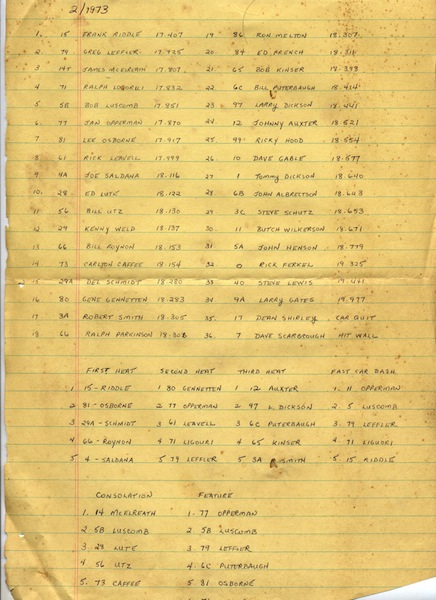 2/1973
1. 15 FRANK RIDDLE 17.407 19 86 RON MELTON 18.307
2 79 GREG LEFFLER 17.725 20 84 ED FRENCH 18.314
3 14T JAMES MCELREATH 17.807 21 65 BOB KINSER 18.398
4 71 RALPH LIGUORI 17.832 22 6C BILL PUTERBAUGH 18.414
5 5B BOB LUSCOMB 17.851 23 97 LARRY DICKSON 18.441
6 77 JAN OPPERMAN 17.870 24 12 JOHNNY AUXTER 18.521
7 81 LEE OSBORNE 17.917 25 99 RICKY HOOD 18.554
8 61 RICK LEAVELL 17.999 26 10 DAVE GABLE 18.577
9 4A JOE SALDANA 18.116 27 1 TOMMY DICKSON 18.640
10. 28 ED LUTE 18.122 28 6B JOHN ALBRECTSON 18.643
11 56 BILL UTZ 18.130 29 3C STEVE SCHUTZ 18.653
12 24 KENNY WELD 18.137 30 11 BUTCH WILKERSON 18.671
13 66 BILL ROYNON 18.153 31 5A JOHN HENSON 18.779
14 73 CARLTON CAFFEE 18.154 32 0 RICK FERKEL 19.325
15 29A DEL SCHMIDT 18.280 33 40 STEVE LEWIS 19.441
16 80 GENE GENNETTEN 18.283 34 9A LARRY GATES 19.977
17 3A ROBERT SMITH 18.305 35. 17 DEAN SHIRLEY CAR QUIT
18 66 RALPH PARKINSON 18.306 36. 7 DAVE SCARBROUGH HIT WALL
FIRST HEAT SECOND HEAT THIRD HEAT FAST CAR DASH
1 15-RIDDLE 1 80 GENNETTEN 1 12 AUXTER 1. 11 OPPERMAN
2 81-OSBORNE 2 77 OPPERMAN 2 97 L. DICKSON 2 5 LUSCOMB
3 29A-SCHMIDT 3 61 LEAVELL 3 6C PUTERBAUGH 3. 79 LEFFLER
4 66-ROYNON 4 71 LIGOURI 4 65 KINSER 4. 71 LIGUORI
5. 4-SALDANA 5 79 LEFFLER 5 3A SMITH 5. 15 RIDDLE
CONSOLATION FEATURE
1. 14 MCELREATH 1. 77 OPPERMAN
2 5B LUSCOMB 2 5B LUSCOMB
3 28 LUTE 3. 79 LEFFLER
4 56 UTZ 4 6C PUTERBAUGH
5. 73 CAFFEE 5 81 OSBORNE